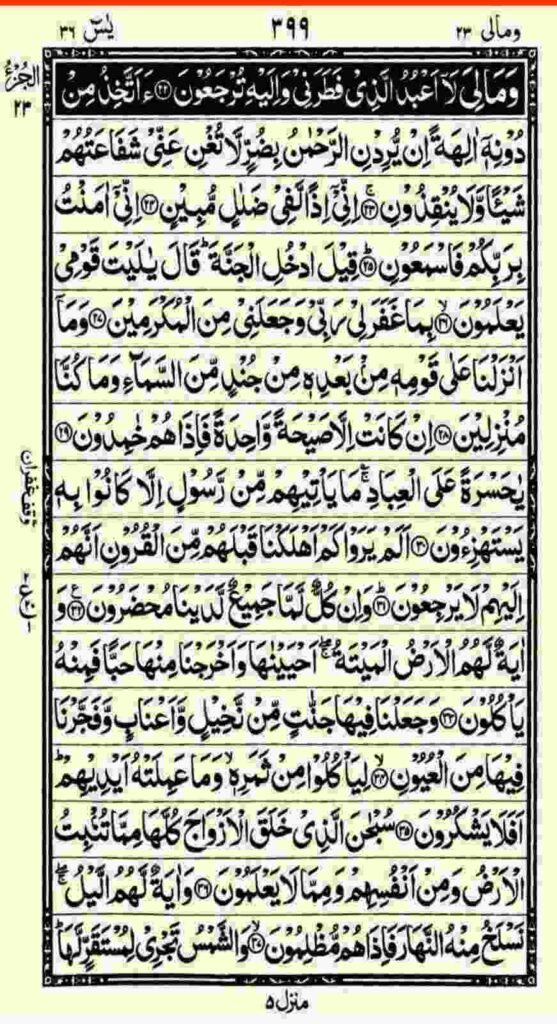 ومالی ٢٣
٣٩٩
يٰسٓ ٣٦
الجزء
٢٣
وَمَالِيَ لَآ اَعْبُدُ الَّذِيْ فَطَرَنِيْ وَاِلَيْهِ تُرْجَعُوْنَ ﴿٢٢﴾ ءَاَتَّخِذُ مِنْ
دُوْنِهٖٓ اٰلِهَةً اِنْ يُّرِدْنِ الرَّحْمٰنُ بِضُرٍّ لَّا تُغْنِ عَنِّيْ شَفَاعَتُهُمْ
شَيْـًٔا وَّلَا يُنْقِذُوْنِ ﴿٢٣﴾ اِنِّيْٓ اِذًا لَّفِيْ ضَلٰلٍ مُّبِيْنٍ ﴿٢٤﴾ اِنِّيْٓ اٰمَنْتُ
بِرَبِّكُمْ فَاسْمَعُوْنِ ﴿٢٥﴾ قِيْلَ ادْخُلِ الْجَنَّةَ ؕ قَالَ يٰلَيْتَ قَوْمِيْ
يَعْلَمُوْنَ ﴿٢٦﴾ بِمَا غَفَرَ لِيْ رَبِّيْ وَجَعَلَنِيْ مِنَ الْمُكْرَمِيْنَ ﴿٢٧﴾ وَمَآ
اَنْزَلْنَا عَلٰى قَوْمِهٖ مِنْۢ بَعْدِهٖ مِنْ جُنْدٍ مِّنَ السَّمَآءِ وَمَا كُنَّا
مُنْزِلِيْنَ ﴿٢٨﴾ اِنْ كَانَتْ اِلَّا صَيْحَةً وَّاحِدَةً فَاِذَا هُمْ خٰمِدُوْنَ ﴿٢٩﴾
يٰحَسْرَةً عَلَى الْعِبَادِ ۚ مَا يَاْتِيْهِمْ مِّنْ رَّسُوْلٍ اِلَّا كَانُوْا بِهٖ
يَسْتَهْزِءُوْنَ ﴿٣٠﴾ اَلَمْ يَرَوْا كَمْ اَهْلَكْنَا قَبْلَهُمْ مِّنَ الْقُرُوْنِ اَنَّهُمْ
اِلَيْهِمْ لَا يَرْجِعُوْنَ ﴿٣١﴾ وَاِنْ كُلٌّ لَّمَّا جَمِيْعٌ لَّدَيْنَا مُحْضَرُوْنَ ﴿٣٢﴾ وَ
اٰيَةٌ لَّهُمُ الْاَرْضُ الْمَيْتَةُ ۖۚ اَحْيَيْنٰهَا وَاَخْرَجْنَا مِنْهَا حَبًّا فَمِنْهُ
يَاْكُلُوْنَ ﴿٣٣﴾ وَجَعَلْنَا فِيْهَا جَنّٰتٍ مِّنْ نَّخِيْلٍ وَّاَعْنَابٍ وَّفَجَّرْنَا
فِيْهَا مِنَ الْعُيُوْنِ ﴿٣٤﴾ لِيَاْكُلُوْا مِنْ ثَمَرِهٖ ۙ وَمَا عَمِلَتْهُ اَيْدِيْهِمْ ؕ
اَفَلَا يَشْكُرُوْنَ ﴿٣٥﴾ سُبْحٰنَ الَّذِيْ خَلَقَ الْاَزْوَاجَ كُلَّهَا مِمَّا تُنْۢبِتُ
الْاَرْضُ وَمِنْ اَنْفُسِهِمْ وَمِمَّا لَا يَعْلَمُوْنَ ﴿٣٦﴾ وَاٰيَةٌ لَّهُمُ الَّيْلُ ۖۚ
نَسْلَخُ مِنْهُ النَّهَارَ فَاِذَا هُمْ مُّظْلِمُوْنَ ﴿٣٧﴾ وَالشَّمْسُ تَجْرِيْ لِمُسْتَقَرٍّ لَّهَا ؕ
وقف غفران
منزل ٥